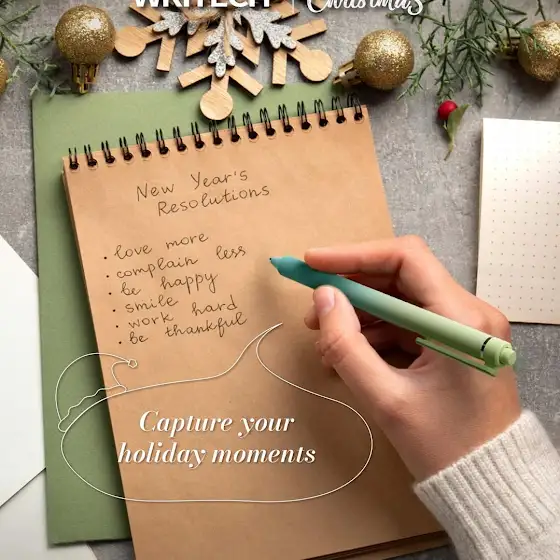 WRITECH | Christmas
New Year's
Resolutions
• love more
• complain less
• be happy
• smile
• work hard
• be thankful
Capture your
holiday moments